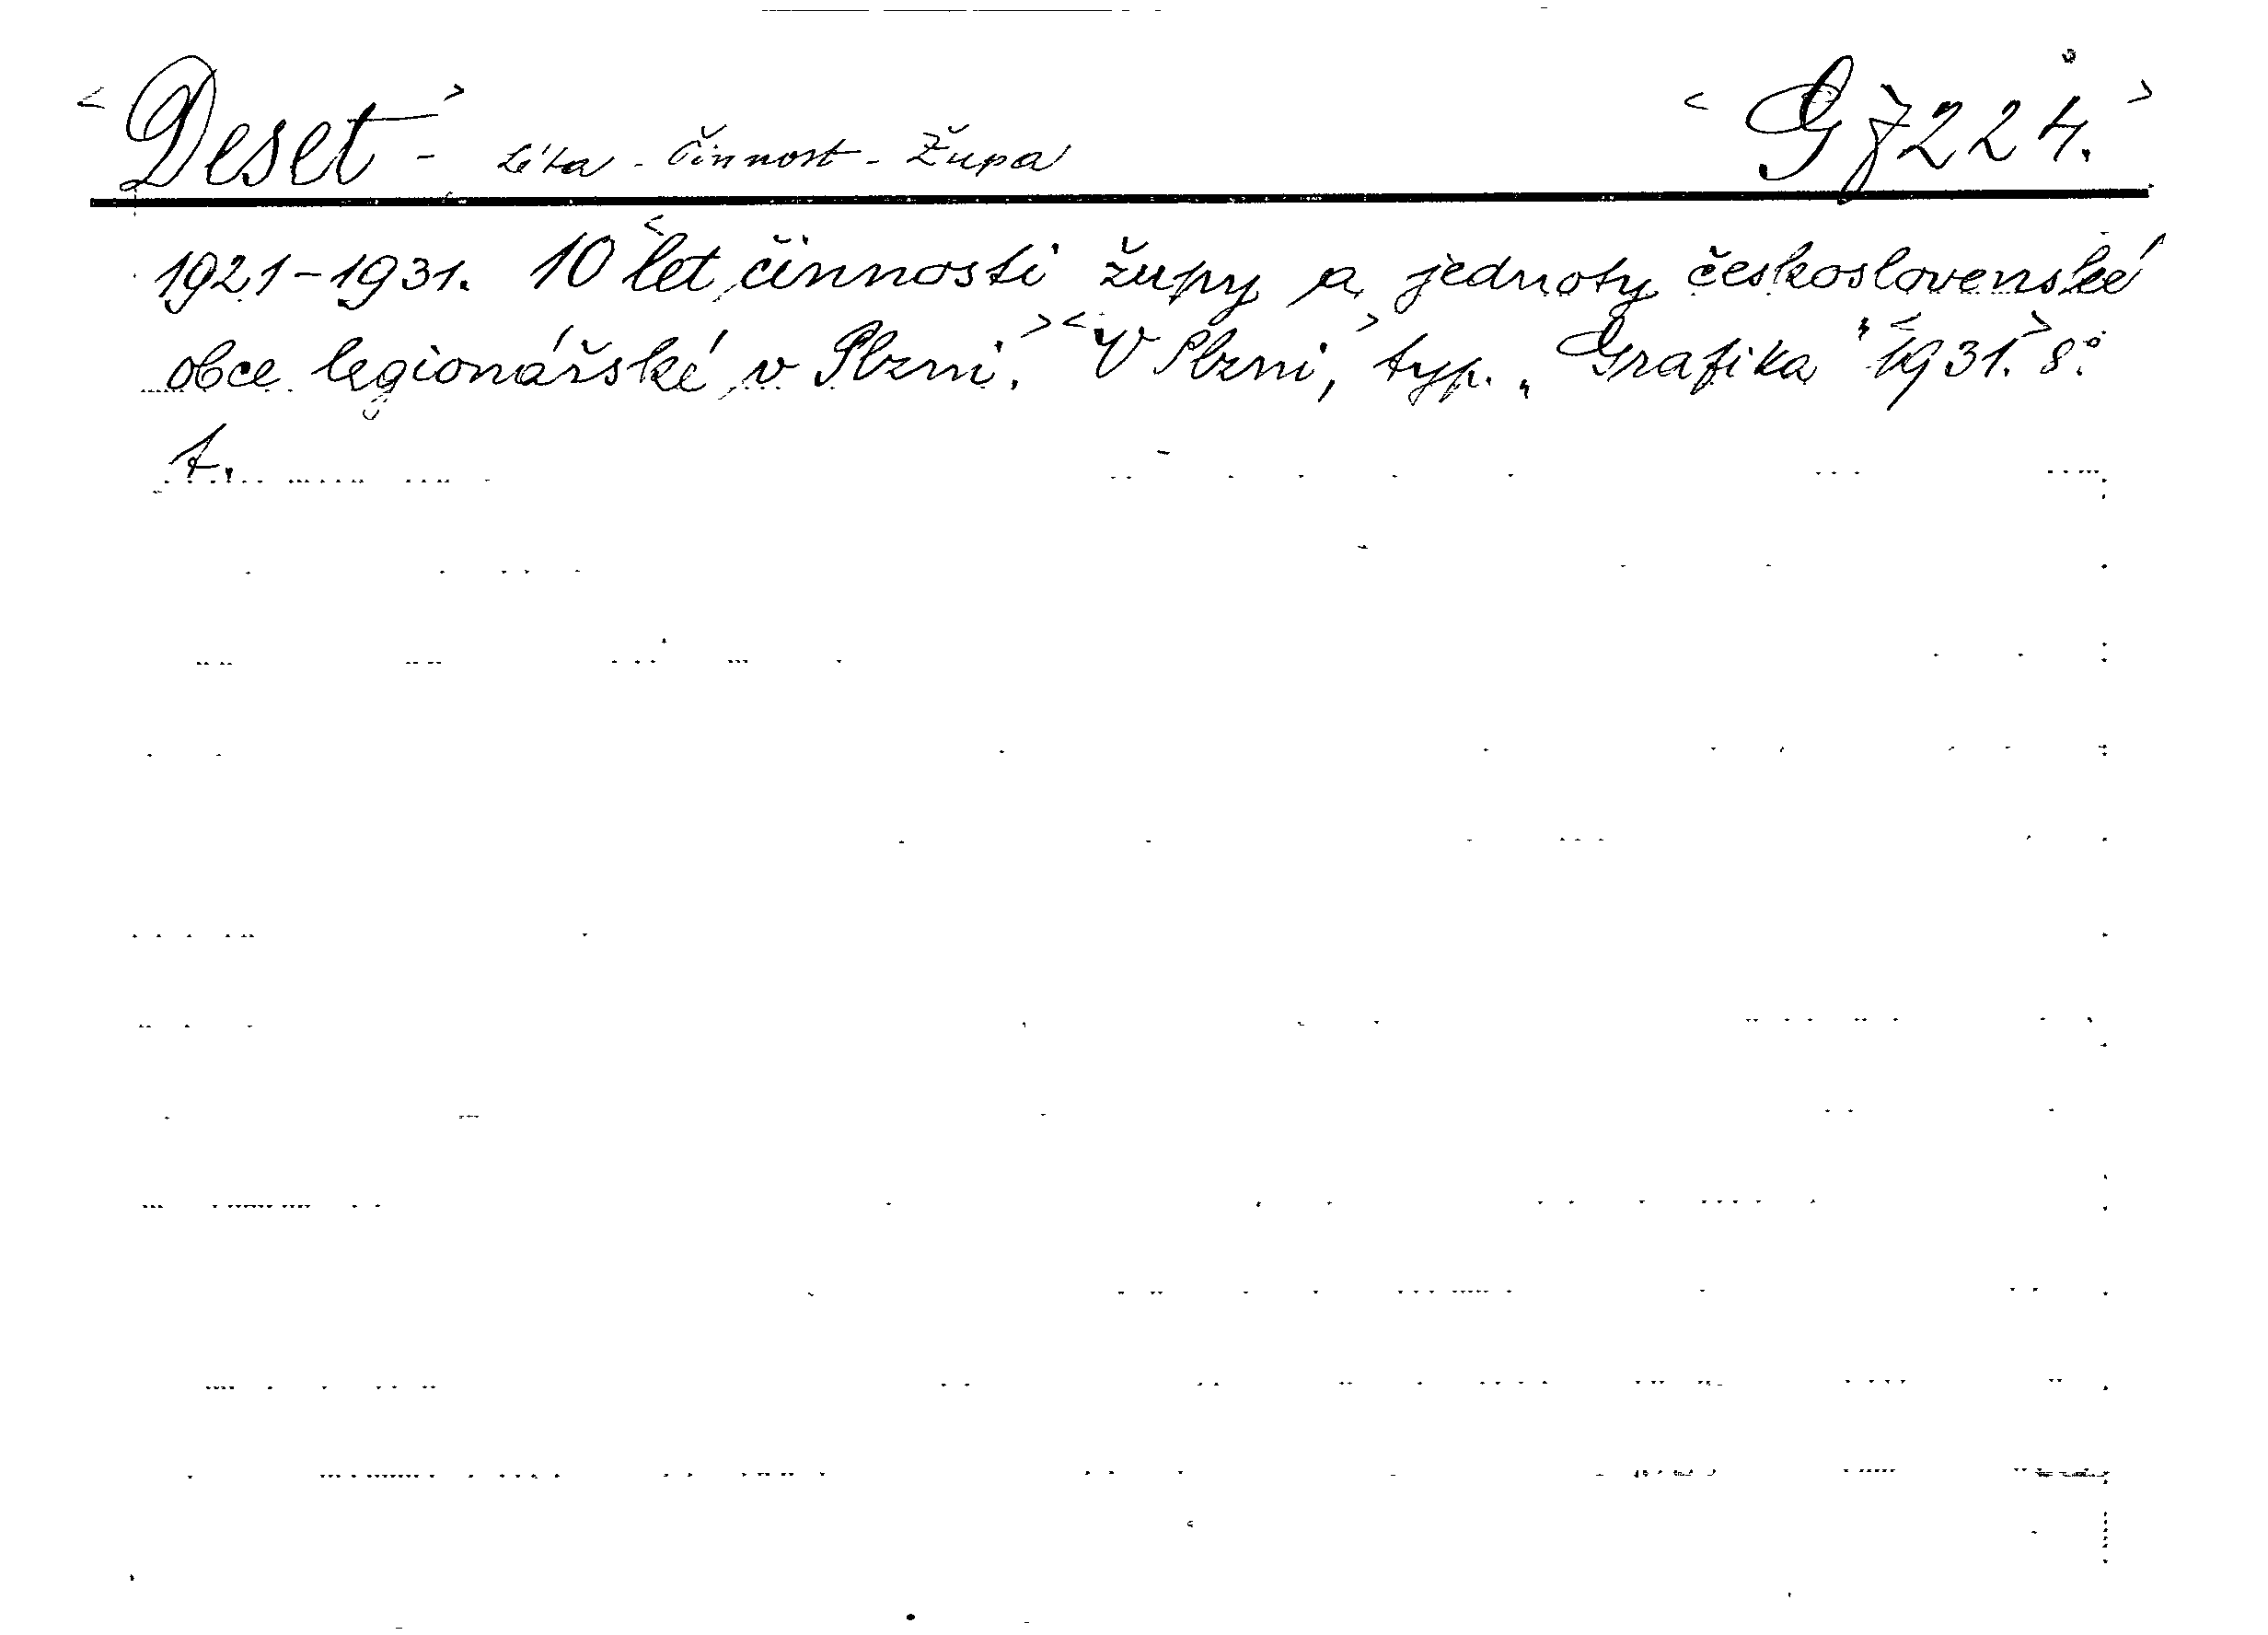 <Deset -> Léta - Činnost - Župa <G 7224.>
1921-1931. 10 <let činnosti župy a jednoty československé
obce legionářské v Plzni.> <V Plzni,> typ. „Grafika" <1931.> 8°.
t.